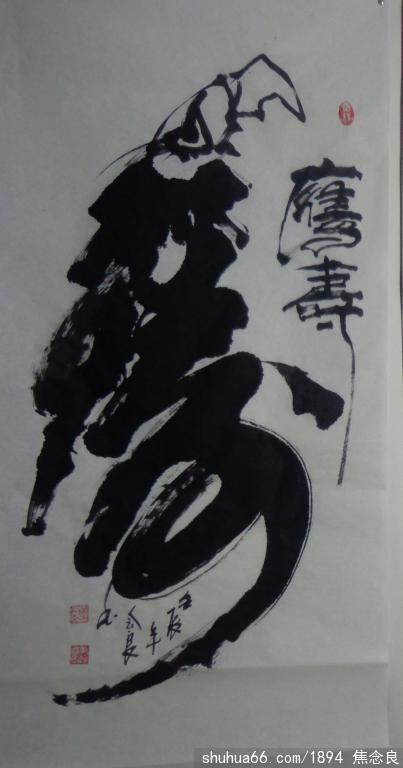 鷹壽
壬辰
年
念良
书
shuhua66.com/1894 焦念良